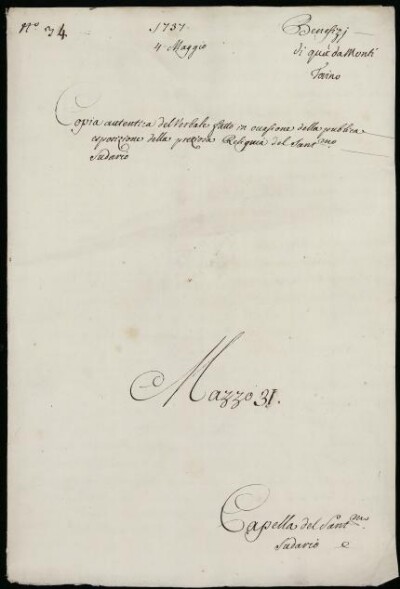 N.º 34.
1737
4 Maggio
Benefizj
di quà da Monti
Torino
Copia autentica del Verbale fatto in occasione della publica
esposizione della preziosa Reliquia del Sant.mo
Sudario
Mazzo 31.
Capella del Sant.mo
Sudario